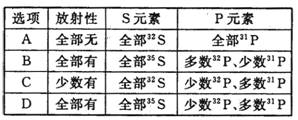 选项 放射性 S元素 P元素
A 全部无 全部³²S 全部³¹P
B 全部有 全部³⁵S 多数³²P、少数³¹P
C 少数有 全部³²S 少数³²P、多数³¹P
D 全部有 全部³⁵S 少数³²P、多数³¹P